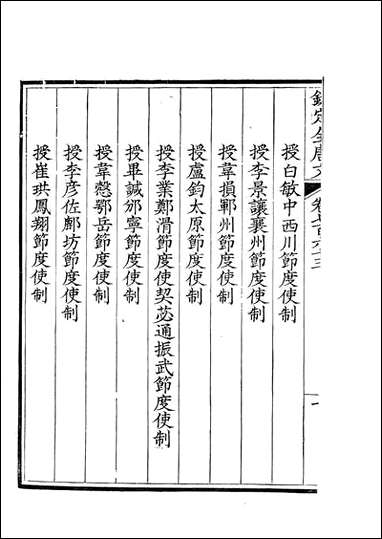 欽定全唐文 卷七百六十三 一
授白敏中西川節度使制
授李景讓襄州節度使制
授韋損鄆州節度使制
授盧鈞太原節度使制
授李業鄭滑節度使契苾通振武節度使制
授畢諴邠寧節度使制
授韋慤鄂岳節度使制
授李彥佐鄜坊節度使制
授崔珙鳳翔節度使制